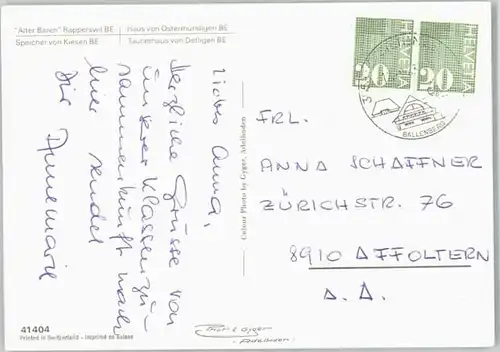 "Alter Bären" Rapperswil BE
Speicher von Kiesen BE
Haus von Ostermundigen BE
Taunerhaus von Detligen BE
Liebes Anna,
Herzliche Grüsse von
unserer Klassenzu-
sammenkunft
hier sendet
Dir Annemarie
Colour Photo by Gyger, Adelboden
HELVETIA
20
HELVETIA
20
BALLENBERG
FRL.
ANNA SCHAFFNER
ZÜRICHSTR. 76
8910 AFFOLTERN
A. A.
41404
Printed in Switzerland - Imprimé en Suisse
Gyger
Adelboden